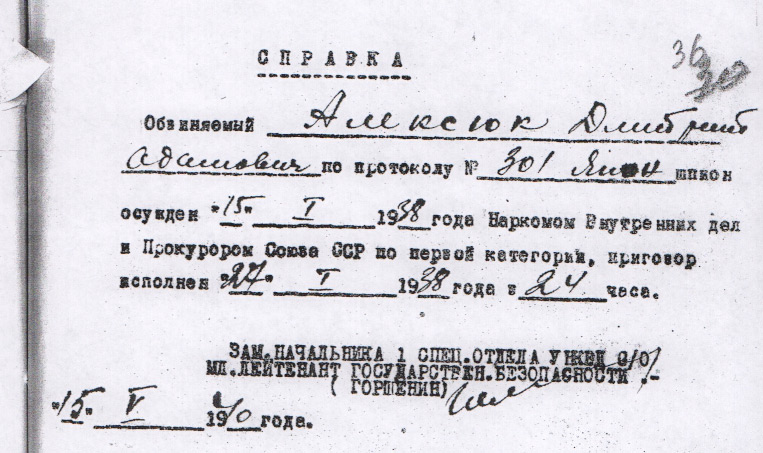 36
30
СПРАВКА
Обвиняемый Алексюк Дмитрий
Адамович по протоколу № 301 шпион
осужден "15" I 1938 года Наркомом Внутренних дел
и Прокурором Союза ССР по первой категории, приговор
исполнен "27" I 1938 года в 24 часа.
ЗАМ.НАЧАЛЬНИКА 1 СПЕЦ.ОТДЕЛА УНКВД
МЛ.ЛЕЙТЕНАНТ ГОСУДАРСТВЕН.БЕЗОПАСНОСТИ
(ГОРШЕНИН)
"15" V 1940 года.